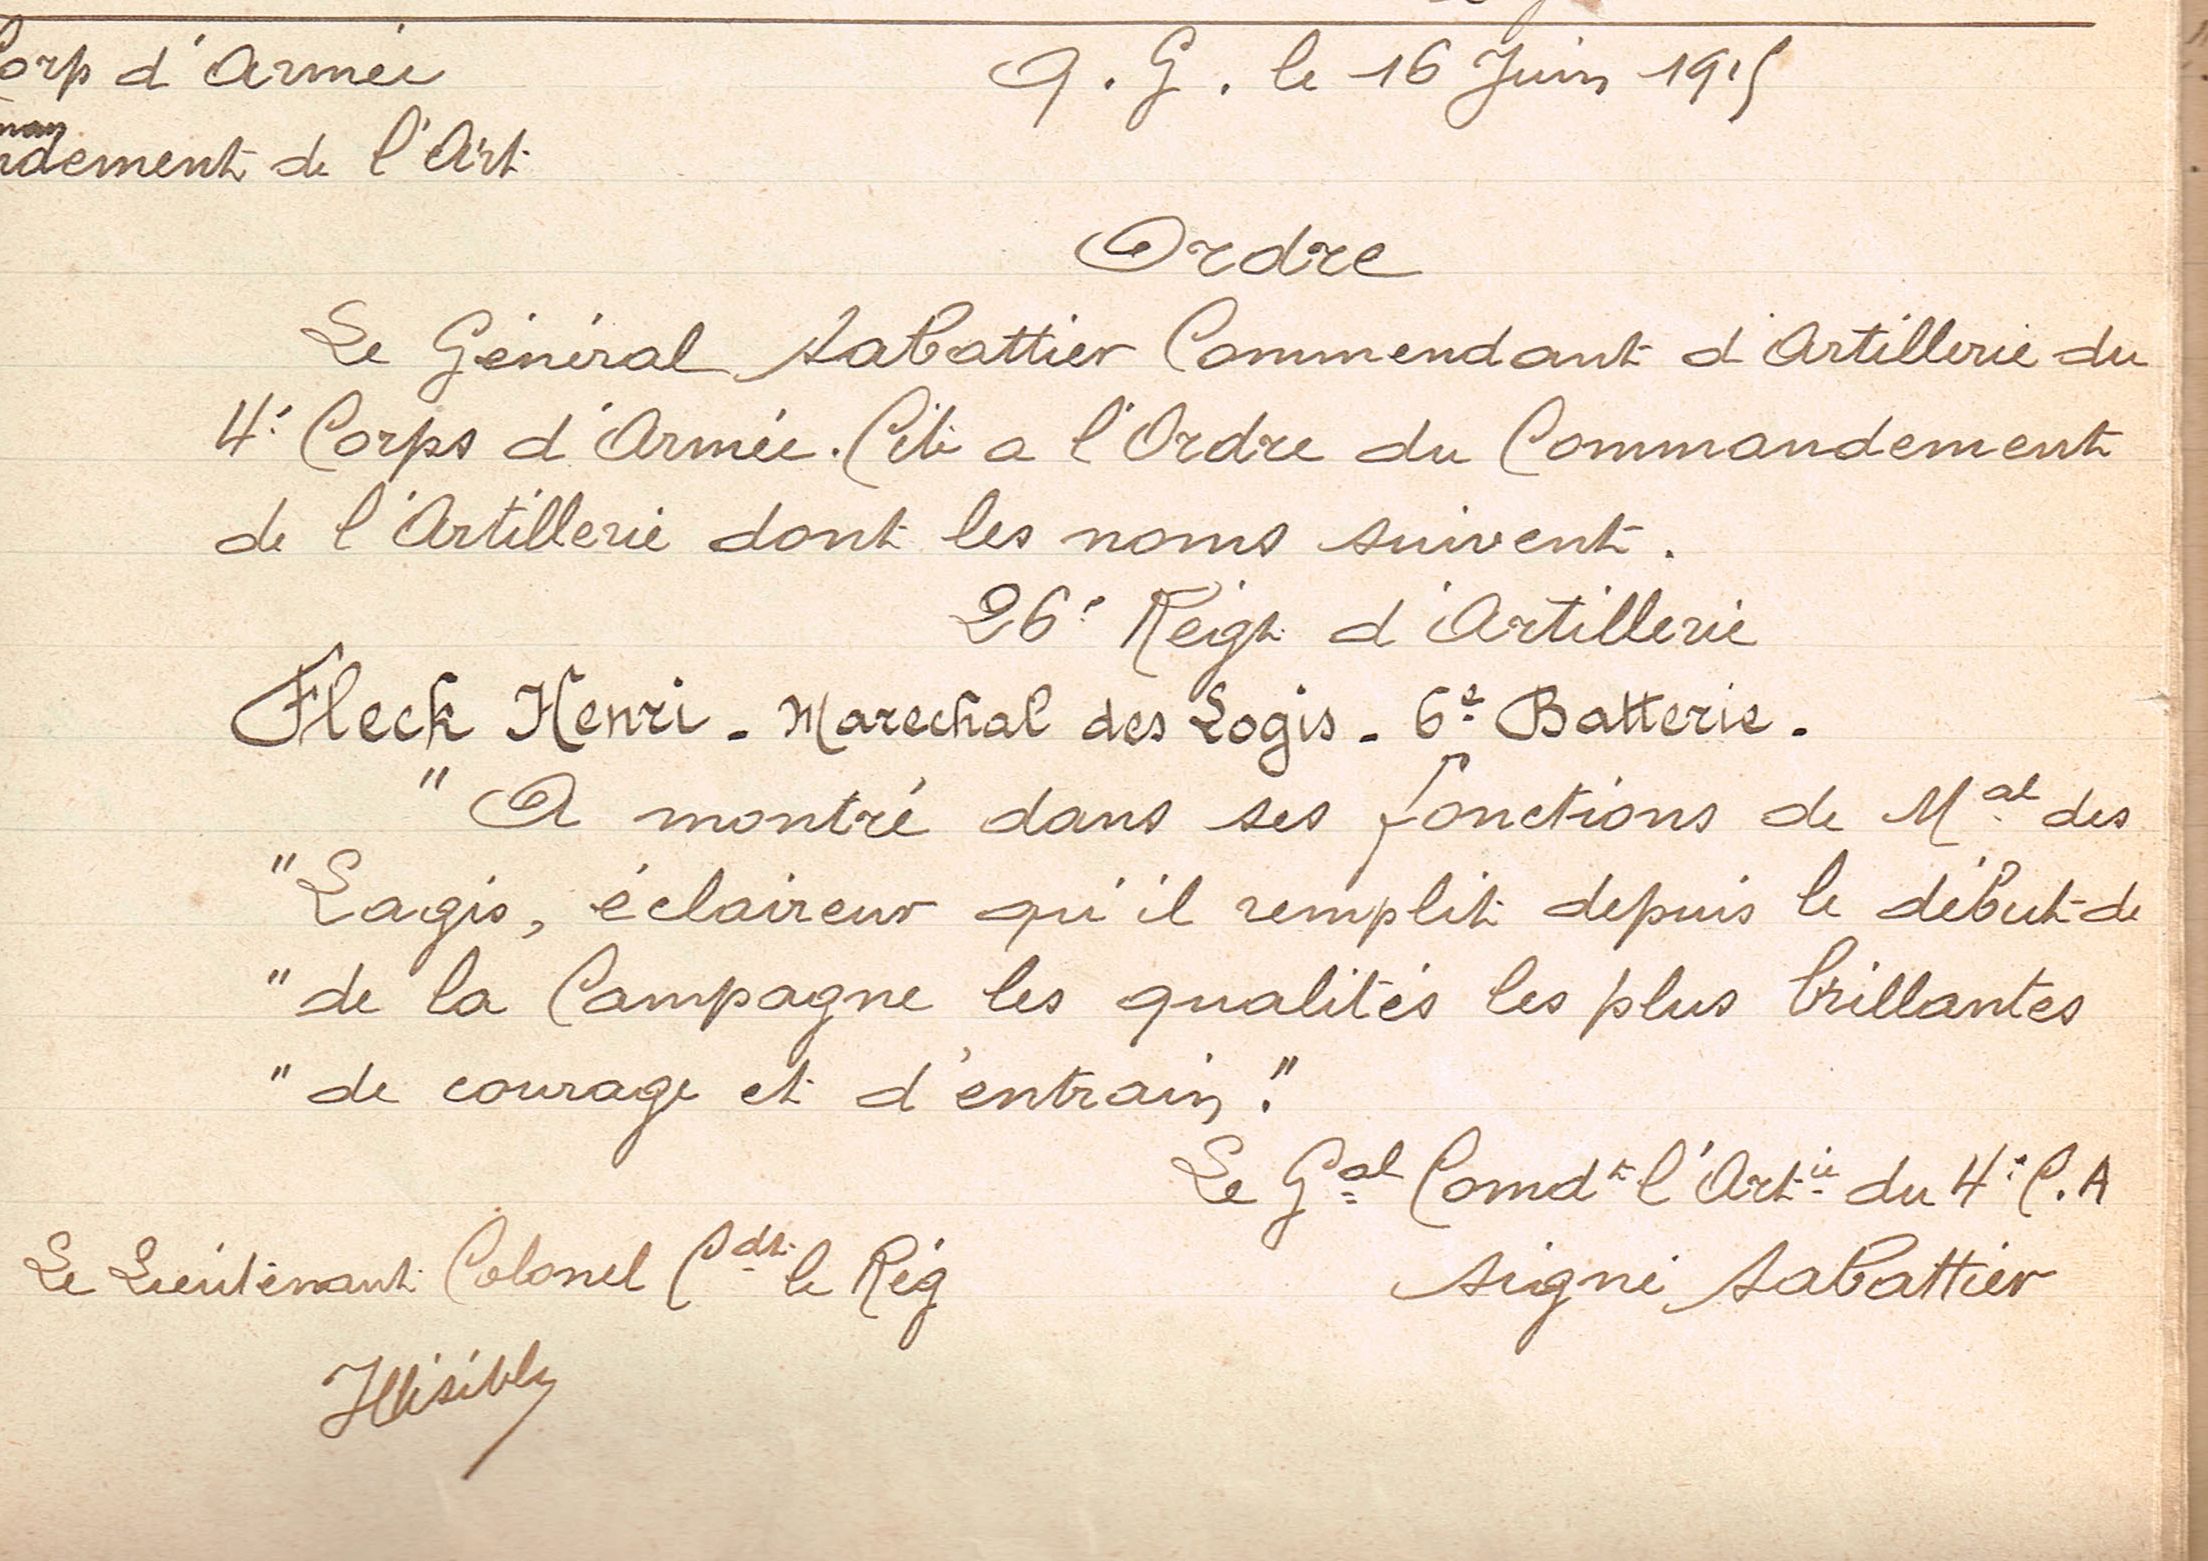 Corp d'Armée
Q. G. le 16 Juin 1915
man
dement de l'Art
Ordre
Le Général Sabattier Commendant d'Artillerie du
4é Corps d'Armée. Cite a l'Ordre du Commandement
de l'Artillerie dont les noms suivent.
26é Reigt d'Artillerie
Fleck Henri - Marechal des Logis - 6e Batterie.
" A montré dans ses fonctions de Mal des
" Lagis, éclaireur qu'il remplit depuis le début de
" de la Campagne les qualités les plus brillantes
" de courage et d'entrain."
Le Gal Comdt l'Artie du 4é C.A
Le Lieutenant Colonel Cdt le Rég
signé Sabattier
Illisible